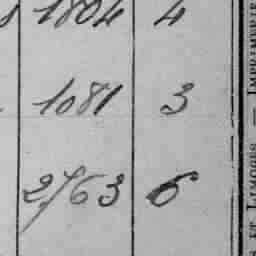 1804 4
1081 3
2763 6
ET LIMOGES — IMPRIMERIE